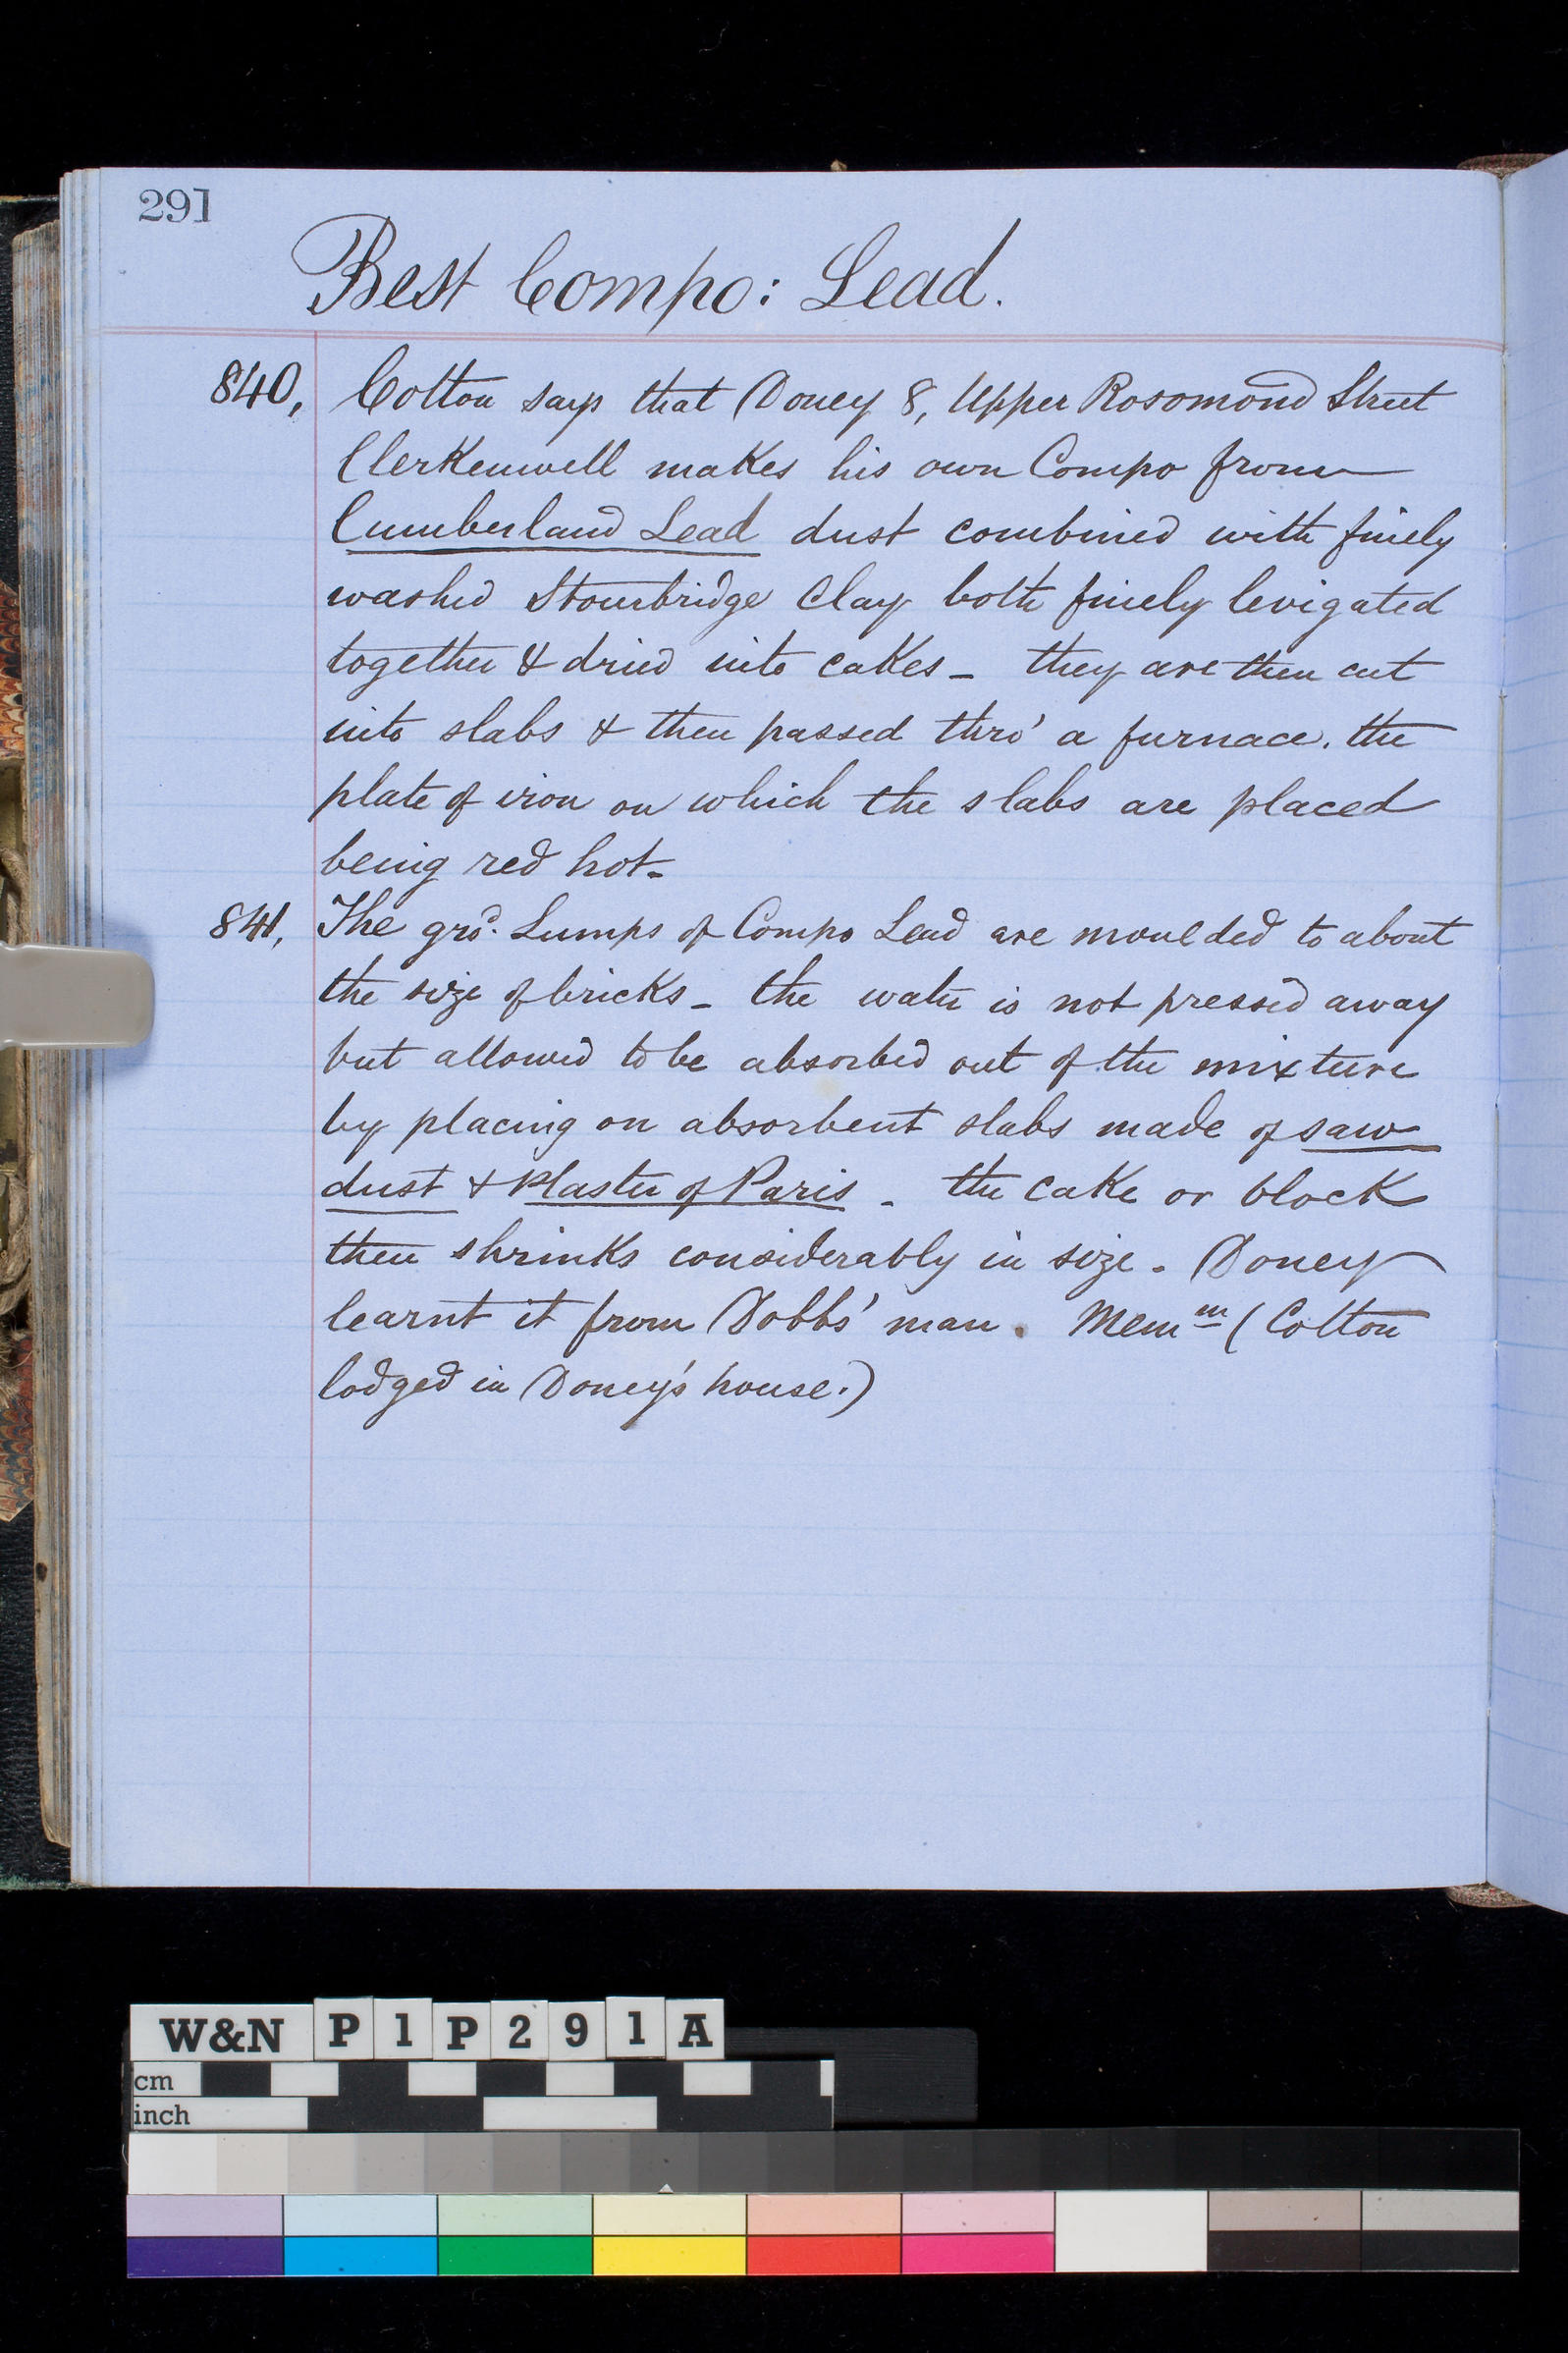 291
Best Compo: Lead.
840, Cotton says that Doney 8, Upper Rosomond Street
Clerkenwell makes his own Compo from
Cumberland Lead dust combined with finely
washed Stourbridge Clay both finely levigated
together & dried into cakes - they are then cut
into slabs & then passed thro' a furnace. the
plate of iron on which the slabs are placed
being red hot-
841, The gro.d Lumps of Compo Lead are moulded to about
the size of bricks - the water is not pressed away
but allowed to be absorbed out of the mixture
by placing on absorbent slabs made of saw
dust & Plaster of Paris - the cake or block
then shrinks considerably in size - Doney
learnt it from Dobbs' man. Mem.m (Cotton
lodged in Doney's house.)
W&N P1P291A
cm
inch